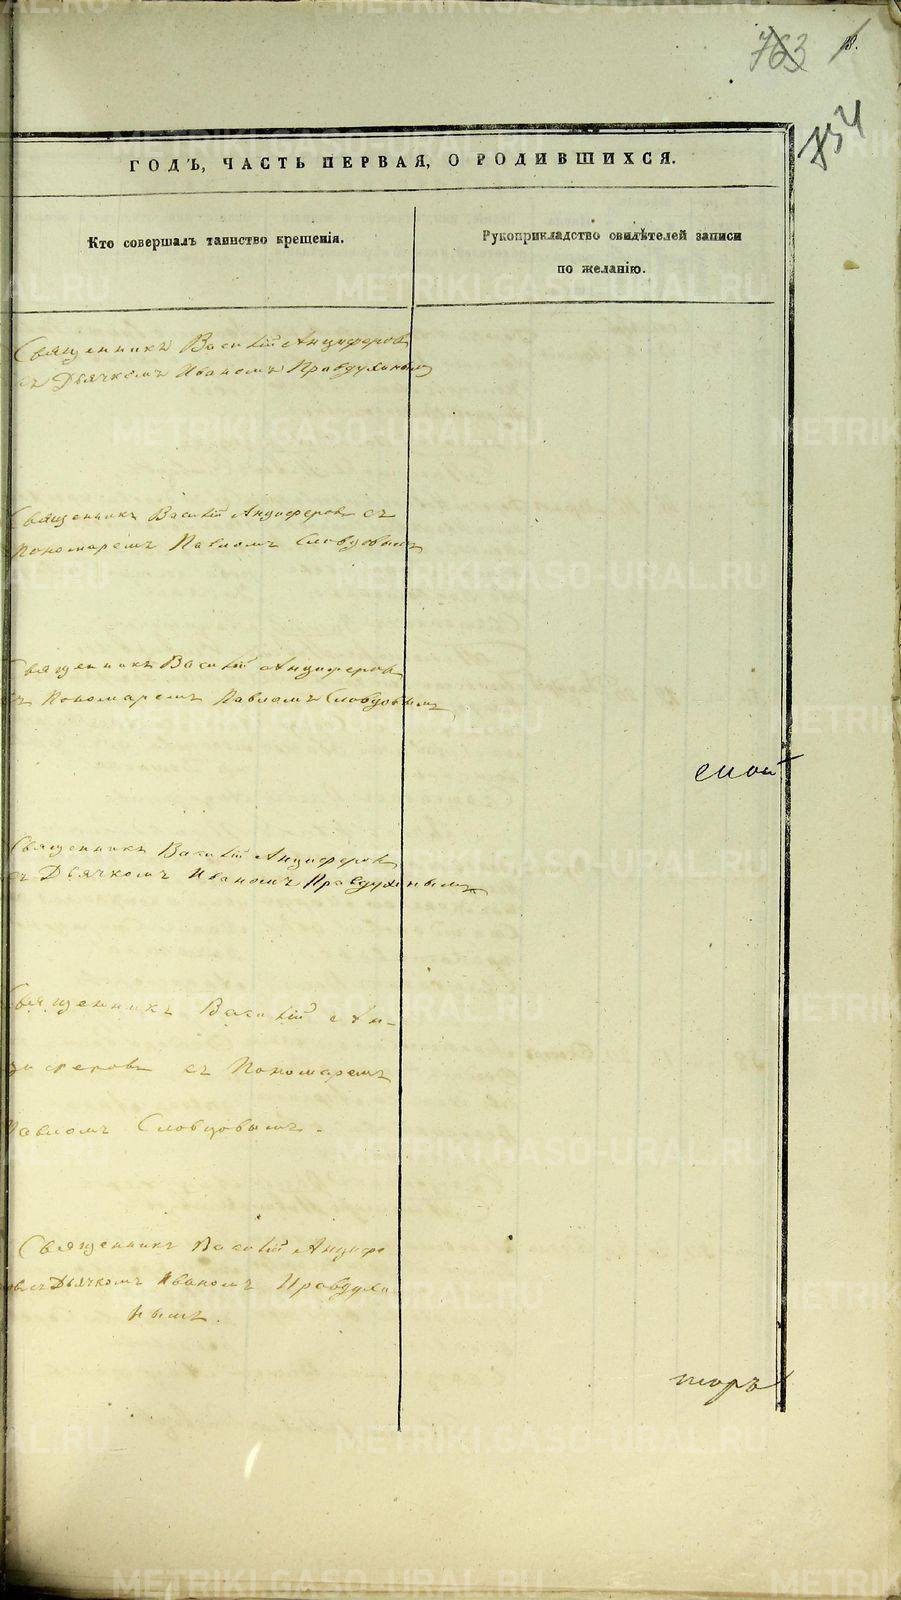 763 18.
754
ГОДЪ, ЧАСТЬ ПЕРВАЯ, О РОДИВШИХСЯ.
Кто совершалъ таинство крещенія.
Рукоприкладство свидѣтелей записи
по желанію.
Священникъ Василій Анциферовъ
съ Дьячкомъ Иваномъ Правдухинымъ
Священникъ Василій Анциферовъ съ
Пономаремъ Павломъ Словцовымъ
Священникъ Василій Анциферовъ
съ Пономаремъ Павломъ Словцовымъ
Священникъ Василій Анциферовъ
съ Дьячкомъ Иваномъ Правдухинымъ
Священникъ Василій Ан-
циферовъ съ Пономаремъ
Павломъ Словцовымъ.
Священникъ Василій Анцифе
ровъ съ Дьячкомъ Иваномъ Правдухи
нымъ.
METRIKI.GASO-URAL.RU